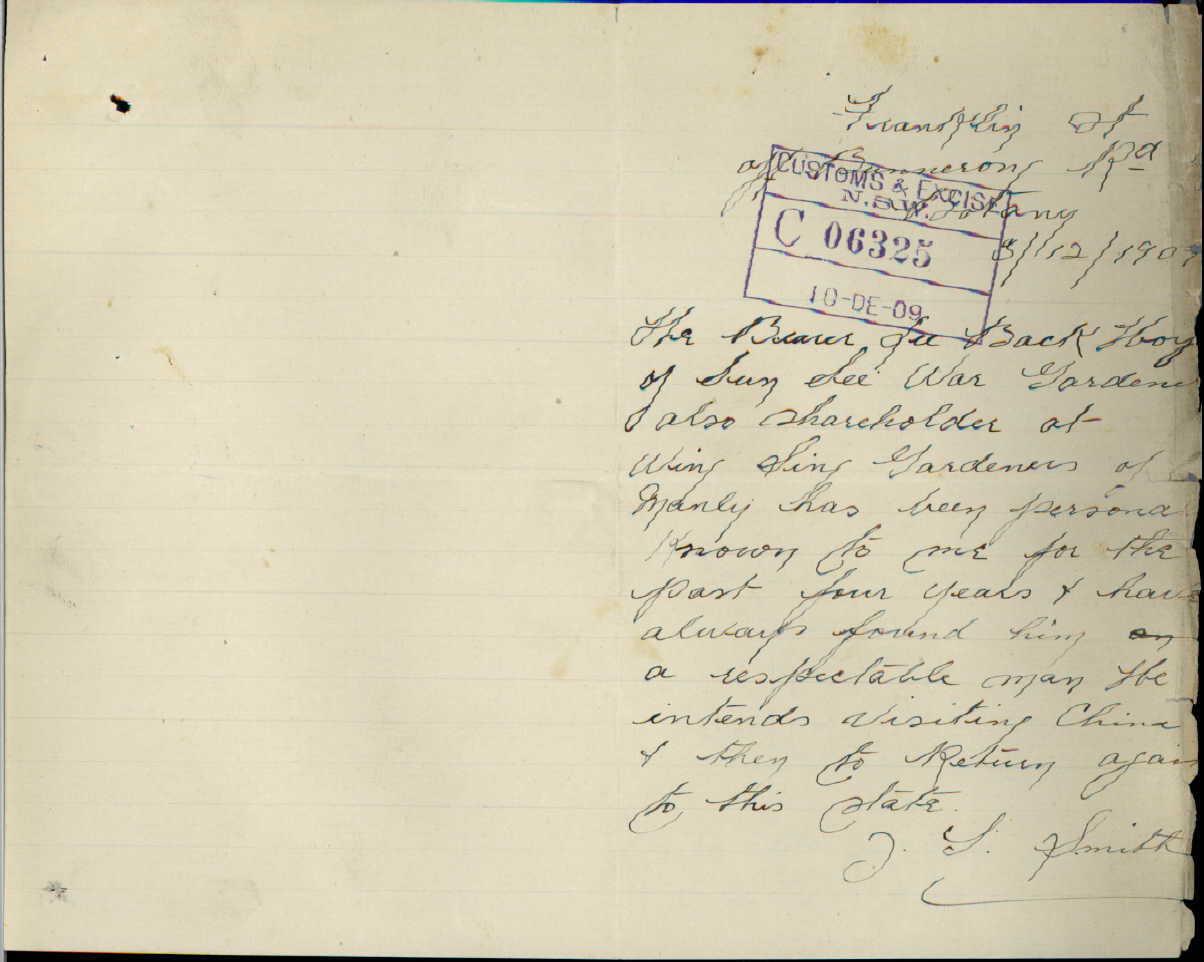 Franklin St
off Bunnerong Rd
Botany
8/12/190
CUSTOMS & EXCISE
N.S.W.
C 06325
10-DE-09
The Bearer Jee Back Hoy
of Sun See War Gardene
& also shareholder at
Wing Sing Gardeners of
Manly has been persona
Known to me for the
past four years & have
always found him
a respectable man He
intends visiting China
& then to Return again
to this state.
J. S. Smith